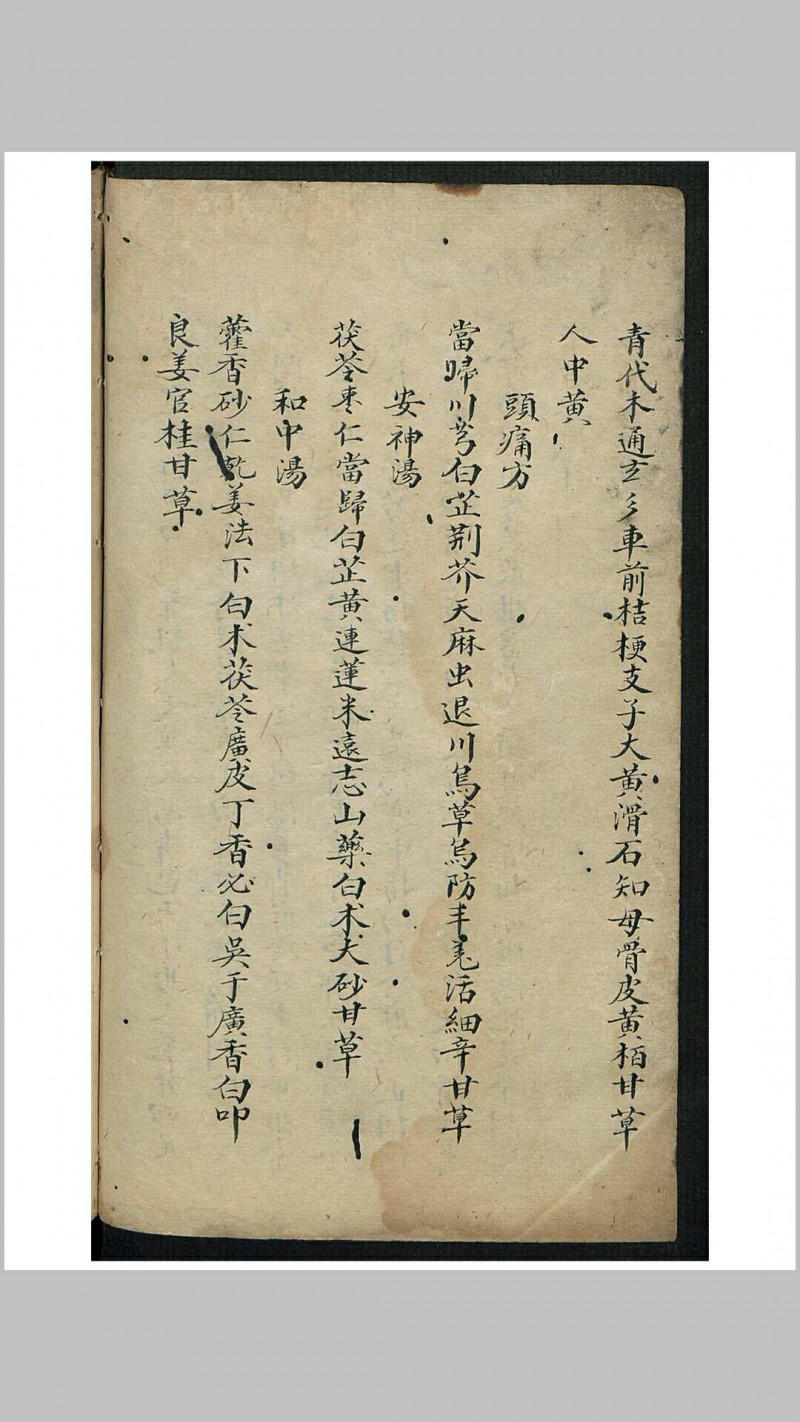 青代木通玄彡車前桔梗支子大黄滑石知母骨皮黄栢甘草
人中黄
頭痛方
當歸川芎白芷荆芥天麻虫退川烏草烏防丰羌活細辛甘草
安神湯
茯苓枣仁當歸白芷黄連蓮米遠志山藥白术大砂甘草
和中湯
藿香砂仁乾姜法下白术茯苓廣皮丁香必白吳于廣香白叩
良姜官桂甘草